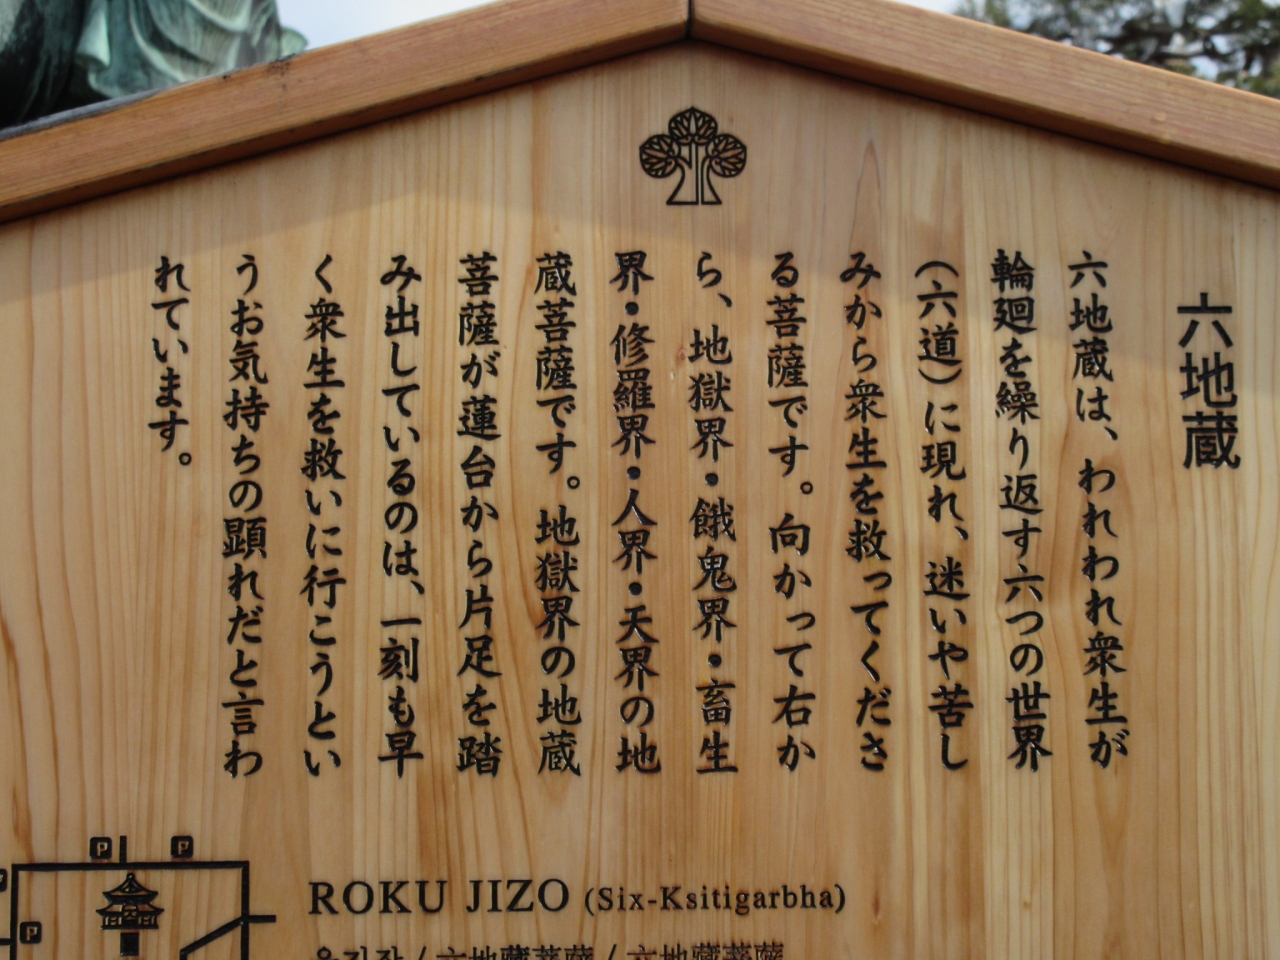 六地蔵
六地蔵は、われわれ衆生が
輪廻を繰り返す六つの世界
(六道)に現れ、迷いや苦し
みから衆生を救ってくださ
る菩薩です。向かって右か
ら、地獄界・餓鬼界・畜生
界・修羅界・人界・天界の地
蔵菩薩です。地獄界の地蔵
菩薩が蓮台から片足を踏
み出しているのは、一刻も早
く衆生を救いに行こうとい
うお気持ちの顕れだと言わ
れています。
P P
P
ROKU JIZO (Six-Ksitigarbha)
六地藏菩薩 / 六地藏菩薩